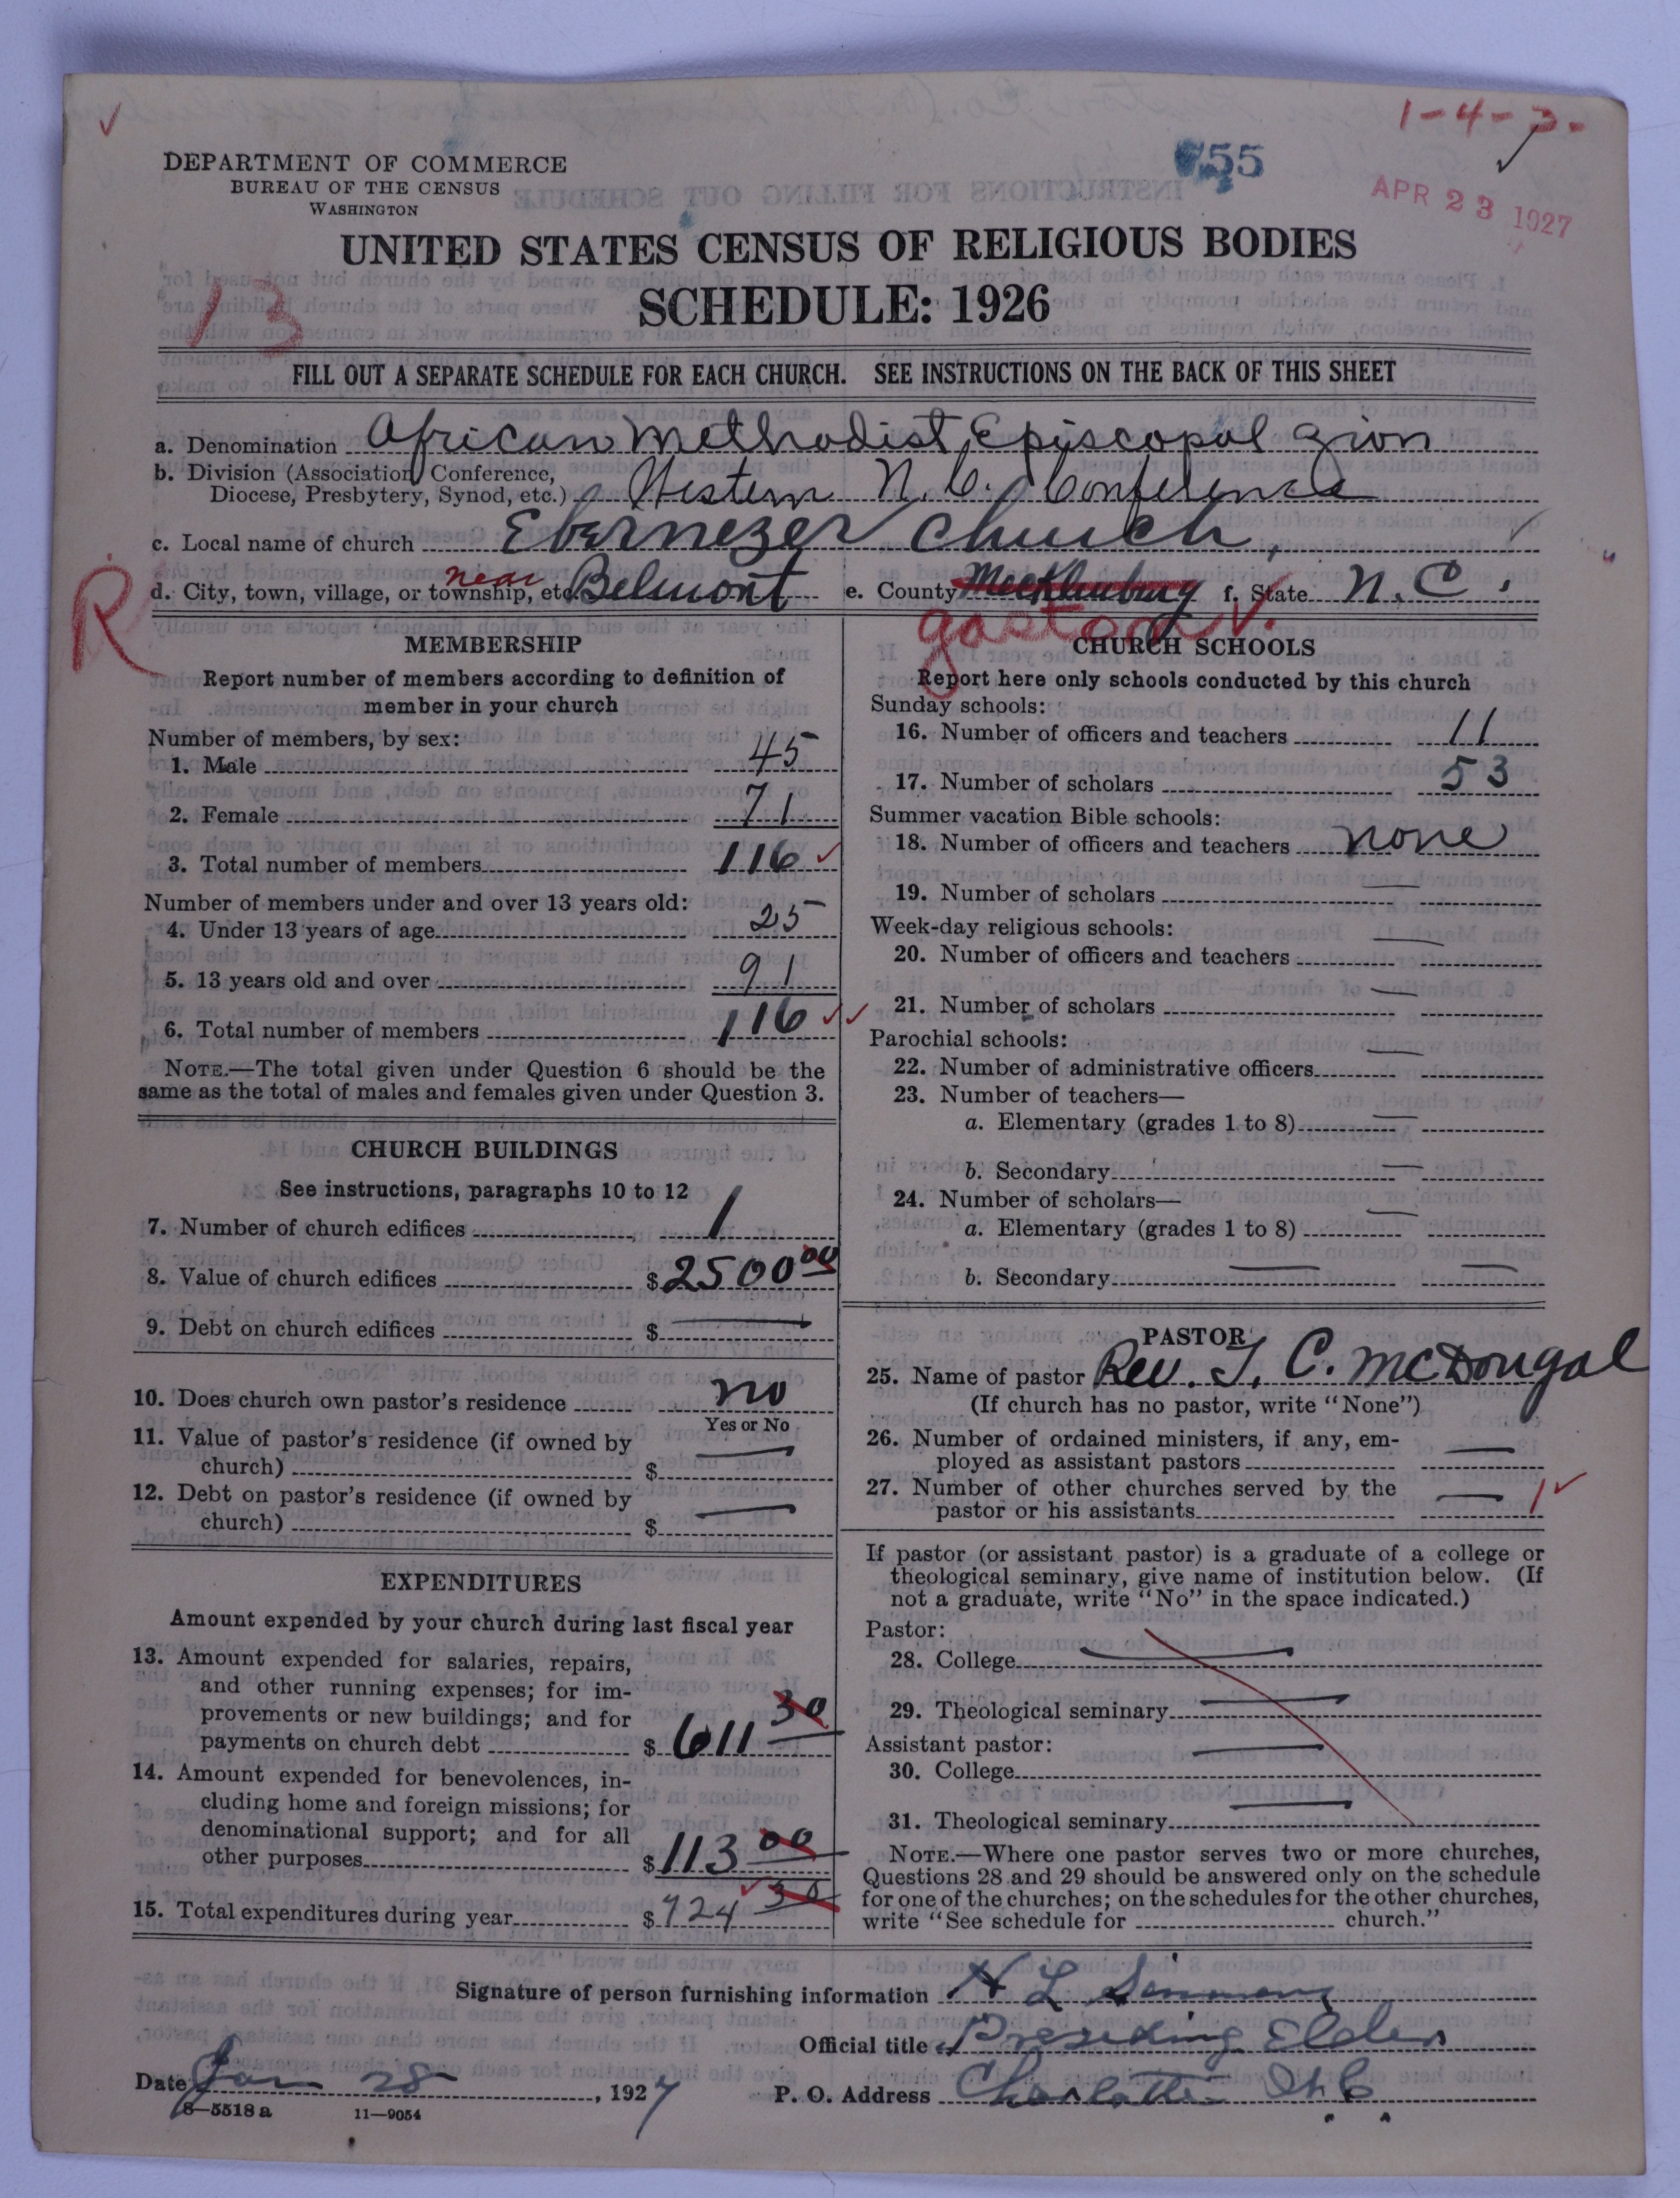 1-4-3-
755
APR 23 1927
DEPARTMENT OF COMMERCE
BUREAU OF THE CENSUS
WASHINGTON
UNITED STATES CENSUS OF RELIGIOUS BODIES
SCHEDULE: 1926
13
FILL OUT A SEPARATE SCHEDULE FOR EACH CHURCH. SEE INSTRUCTIONS ON THE BACK OF THIS SHEET
a. Denomination African Methodist Episcopal Zion
b. Division (Association, Conference,
Diocese, Presbytery, Synod, etc.) Western N.C. Conference
c. Local name of church Ebernezer Church,
R
d. City, town, village, or township, etc. near Belmont e. County Mecklenburg f. State N.C.
gaston
MEMBERSHIP
Report number of members according to definition of
member in your church
Number of members, by sex:
1. Male 45
2. Female 71
3. Total number of members 116
Number of members under and over 13 years old:
4. Under 13 years of age 25
5. 13 years old and over 91
6. Total number of members 116
NOTE.—The total given under Question 6 should be the
same as the total of males and females given under Question 3.
CHURCH BUILDINGS
See instructions, paragraphs 10 to 12
7. Number of church edifices 1
8. Value of church edifices $2500 00
9. Debt on church edifices $ —
10. Does church own pastor's residence no
Yes or No
11. Value of pastor's residence (if owned by
church) $ —
12. Debt on pastor's residence (if owned by
church) $ —
EXPENDITURES
Amount expended by your church during last fiscal year
13. Amount expended for salaries, repairs,
and other running expenses; for im-
provements or new buildings; and for
payments on church debt $ 611 30
14. Amount expended for benevolences, in-
cluding home and foreign missions; for
denominational support; and for all
other purposes $113 00
15. Total expenditures during year $724 30
CHURCH SCHOOLS
Report here only schools conducted by this church
Sunday schools:
16. Number of officers and teachers 11
17. Number of scholars 53
Summer vacation Bible schools:
18. Number of officers and teachers none
19. Number of scholars —
Week-day religious schools:
20. Number of officers and teachers —
21. Number of scholars —
Parochial schools:
22. Number of administrative officers —
23. Number of teachers—
a. Elementary (grades 1 to 8) —
b. Secondary —
24. Number of scholars—
a. Elementary (grades 1 to 8) —
b. Secondary — —
PASTOR
25. Name of pastor Rev. J. C. McDougal
(If church has no pastor, write "None")
26. Number of ordained ministers, if any, em-
ployed as assistant pastors —
27. Number of other churches served by the
pastor or his assistants — 1
If pastor (or assistant pastor) is a graduate of a college or
theological seminary, give name of institution below. (If
not a graduate, write "No" in the space indicated.)
Pastor:
28. College —
29. Theological seminary —
Assistant pastor:
30. College —
31. Theological seminary —
NOTE.—Where one pastor serves two or more churches,
Questions 28 and 29 should be answered only on the schedule
for one of the churches; on the schedules for the other churches,
write "See schedule for church."
Signature of person furnishing information H L Simmons
Official title Presiding Elder
Date Jan 28, 1927 P. O. Address Charlotte N.C.
8—5518a 11—9054